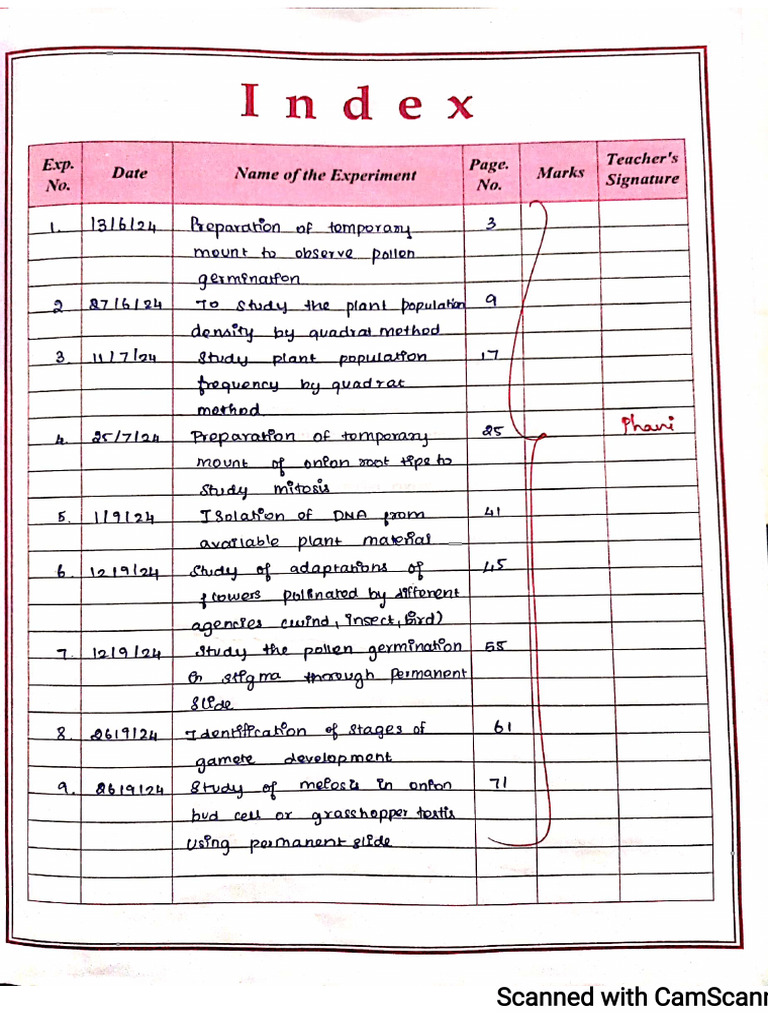 Index
Exp. No. Date Name of the Experiment Page. No. Marks Teacher's Signature
1. 13/6/24 Preparation of temporary 3
mount to observe pollen
germination
2 27/6/24 To study the plant population 9
density by quadrat method
3. 11/7/24 Study plant population 17
frequency by quadrat
method
4. 25/7/24 Preparation of temporary 25 Phani
mount of onion root tips to
study mitosis
5. 1/9/24 Isolation of DNA from 41
available plant material
6. 12/9/24 Study of adaptations of 45
flowers pollinated by different
agencies (wind, insect, bird)
7. 12/9/24 Study the pollen germination 55
on stigma thorough permanent
slide
8. 26/9/24 Identification of stages of 61
gamete development
9. 26/9/24 Study of meiosis in onion 71
bud cell or grasshopper testis
using permanent slide
Scanned with CamScann